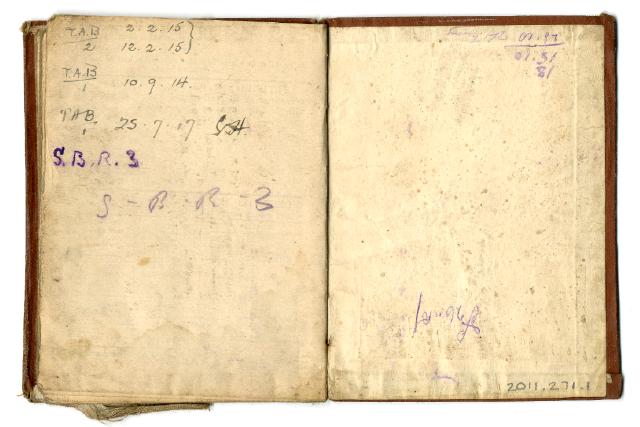 T.A.B 2.2.15 }
2 12.2.15 }
T.A.B
1 10.9.14.
TAB.
1 25.7.17
S.B.R.3
S-B.R-3
2011.271.1